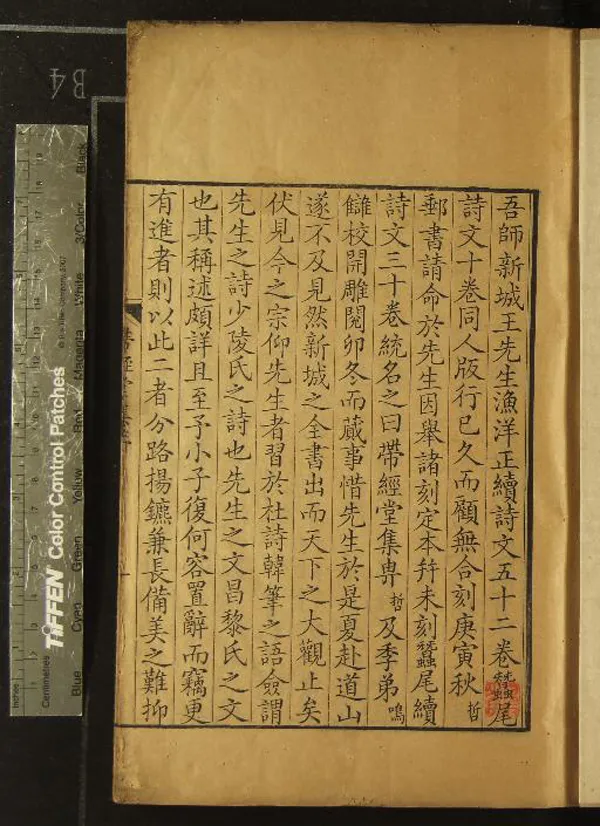 吾師新城王先生漁洋正續詩文五十二卷蠶尾
詩文十卷同人版行已久而顧無合刻庚寅秋哲
郵書請命於先生因舉諸刻定本幷未刻蠶尾續
詩文三十卷統名之曰帶經堂集畀哲及季弟鳴
讎校開雕閱卯冬而蕆事惜先生於是夏赴道山
遂不及見然新城之全書出而天下之大觀止矣
伏見今之宗仰先生者習於杜詩韓筆之語僉謂
先生之詩少陵氏之詩也先生之文昌黎氏之文
也其稱述頗詳且至予小子復何容置辭而竊更
有進者則以此二者分路揚鑣兼長備美之難抑
B4
TIFFEN Color Control Patches
© The Tiffen Company, 2007
Inches
Centimetres
Blue
Cyan
Green
Yellow
Red
Magenta
White
3/Color
Black